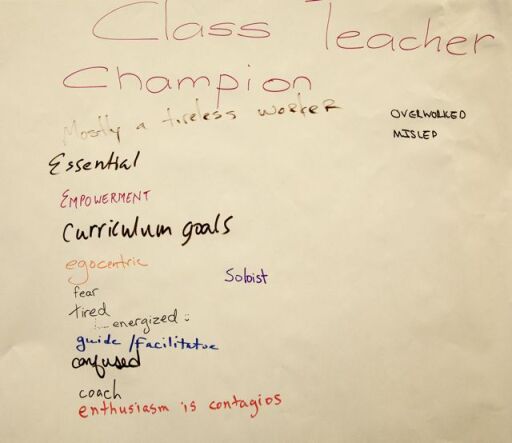 Class Teacher
Champion
Mostly a tireless worker
OVERWORKED
MISLED
Essential
EMPOWERMENT
Curriculum goals
egocentric
Soloist
fear
tired
... energized :
guide / facilitatoe
confused
coach
enthusiasm is contagios